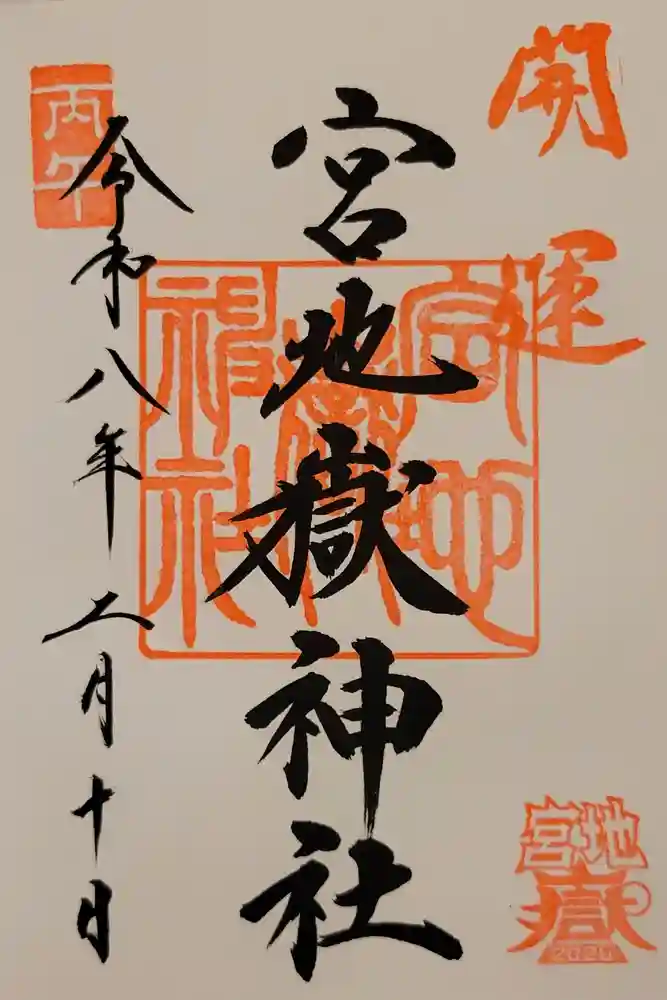 開運
宮地嶽神社
宮地
嶽神
社
丙午
令和八年二月十日
宮地
嶽
2026